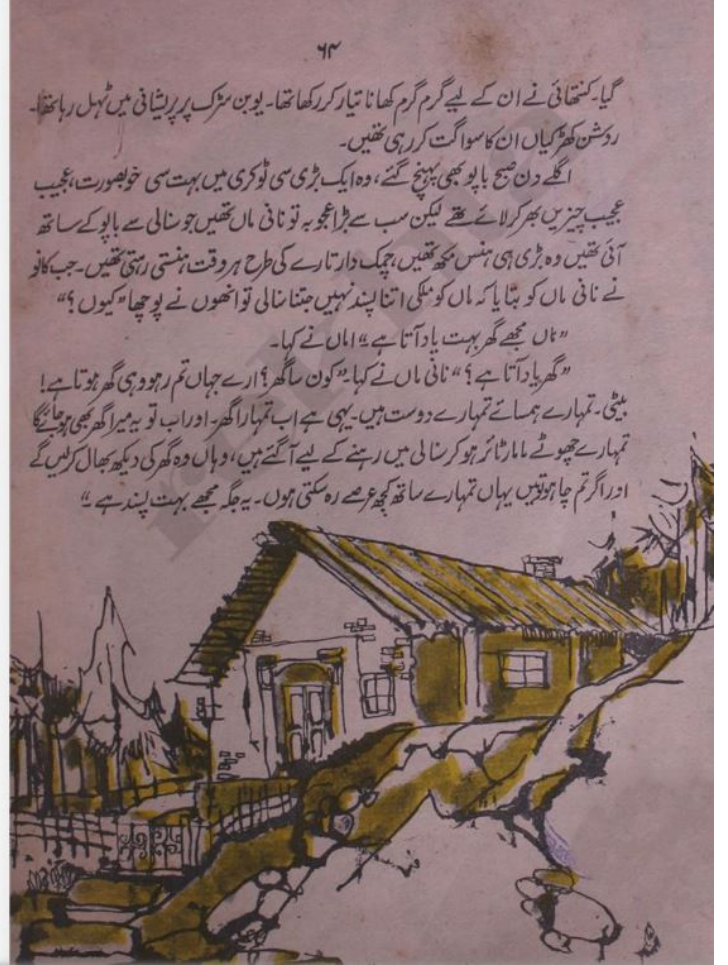 ۶۴
گیا۔ کنتھائی نے ان کے لیے گرم گرم کھانا تیار کر رکھا تھا۔ یوبن سڑک پر پریشانی میں ٹہل رہا تھا۔
روشن کھڑکیاں ان کا سواگت کر رہی تھیں۔
اگلے دن صبح باپو بھی پہنچ گئے، وہ ایک بڑی سی ٹوکری میں بہت سی خوبصورت، عجیب
عجیب چیزیں بھر کر لائے تھے لیکن سب سے بڑا عجوبہ تو نانی ماں تھیں جو سنالی سے باپو کے ساتھ
آئی تھیں وہ بڑی ہی ہنس مکھ تھیں، چمک دار تارے کی طرح ہر وقت ہنستی رہتی تھیں۔ جب کانو
نے نانی ماں کو بتایا کہ ماں کو ملکی اتنا پسند نہیں جتنا سنالی تو انھوں نے پوچھا "کیوں؟"
"ماں مجھے گھر بہت یاد آتا ہے" اماں نے کہا۔
"گھر یاد آتا ہے؟" نانی ماں نے کہا۔ "کون سا گھر؟ ارے جہاں تم رہو وہی گھر ہوتا ہے!
بیٹی۔ تمہارے ہمسائے تمہارے دوست ہیں۔ یہی ہے اب تمہارا گھر۔ اور اب تو یہ میرا گھر بھی ہو جائے گا
تمہارے چھوٹے ماما رٹائر ہو کر سنالی میں رہنے کے لیے آ گئے ہیں، وہاں وہ گھر کی دیکھ بھال کر لیں گے
اور اگر تم چاہو تو میں یہاں تمہارے ساتھ کچھ عرصے رہ سکتی ہوں۔ یہ جگہ مجھے بہت پسند ہے"